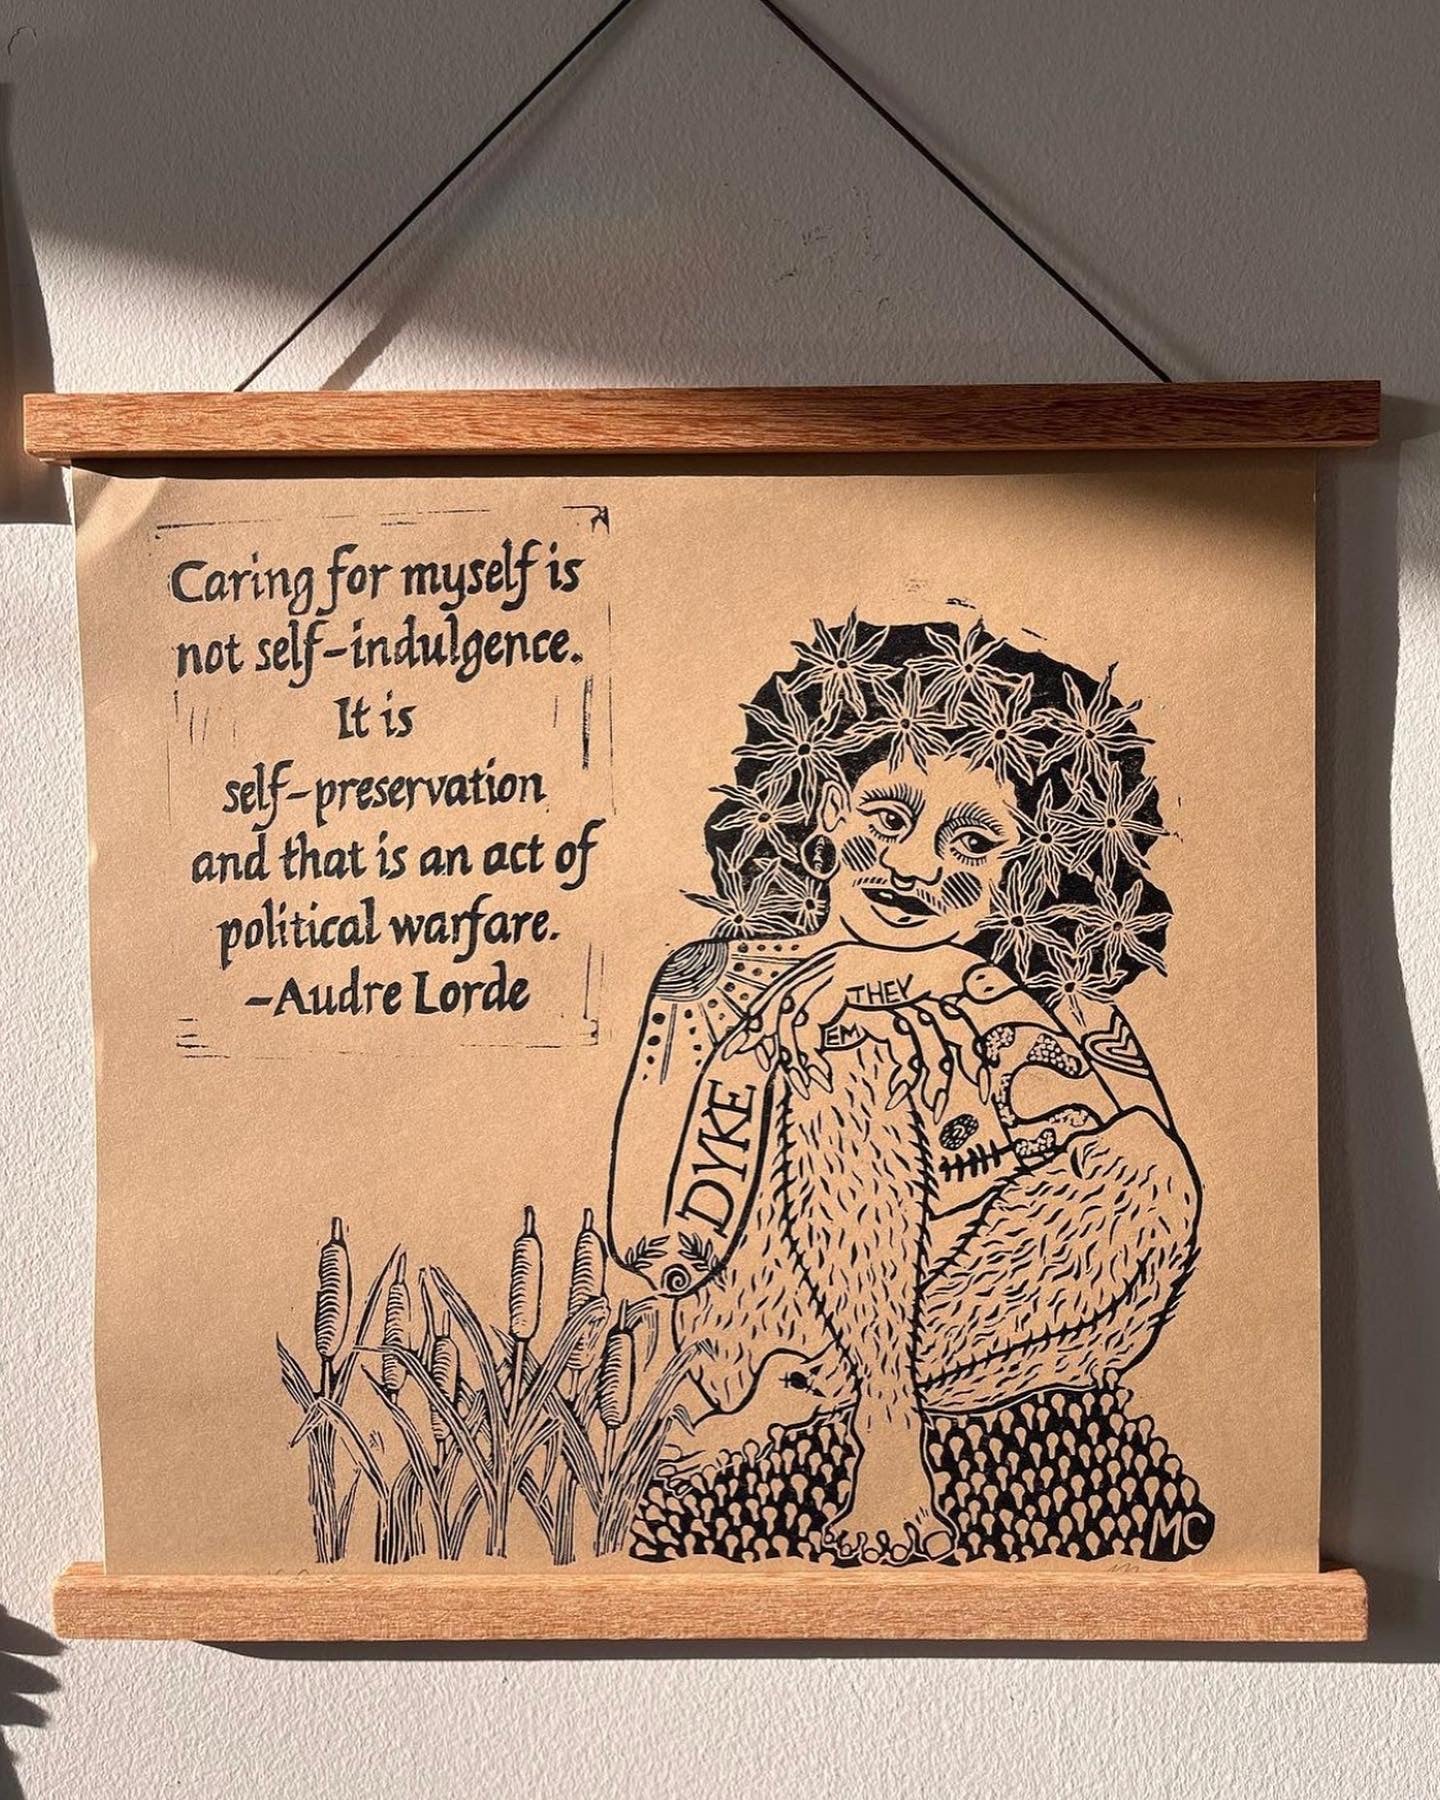 Caring for myself is
not self-indulgence.
It is
self-preservation
and that is an act of
political warfare.
-Audre Lorde
THEY
EM
DYKE
MC